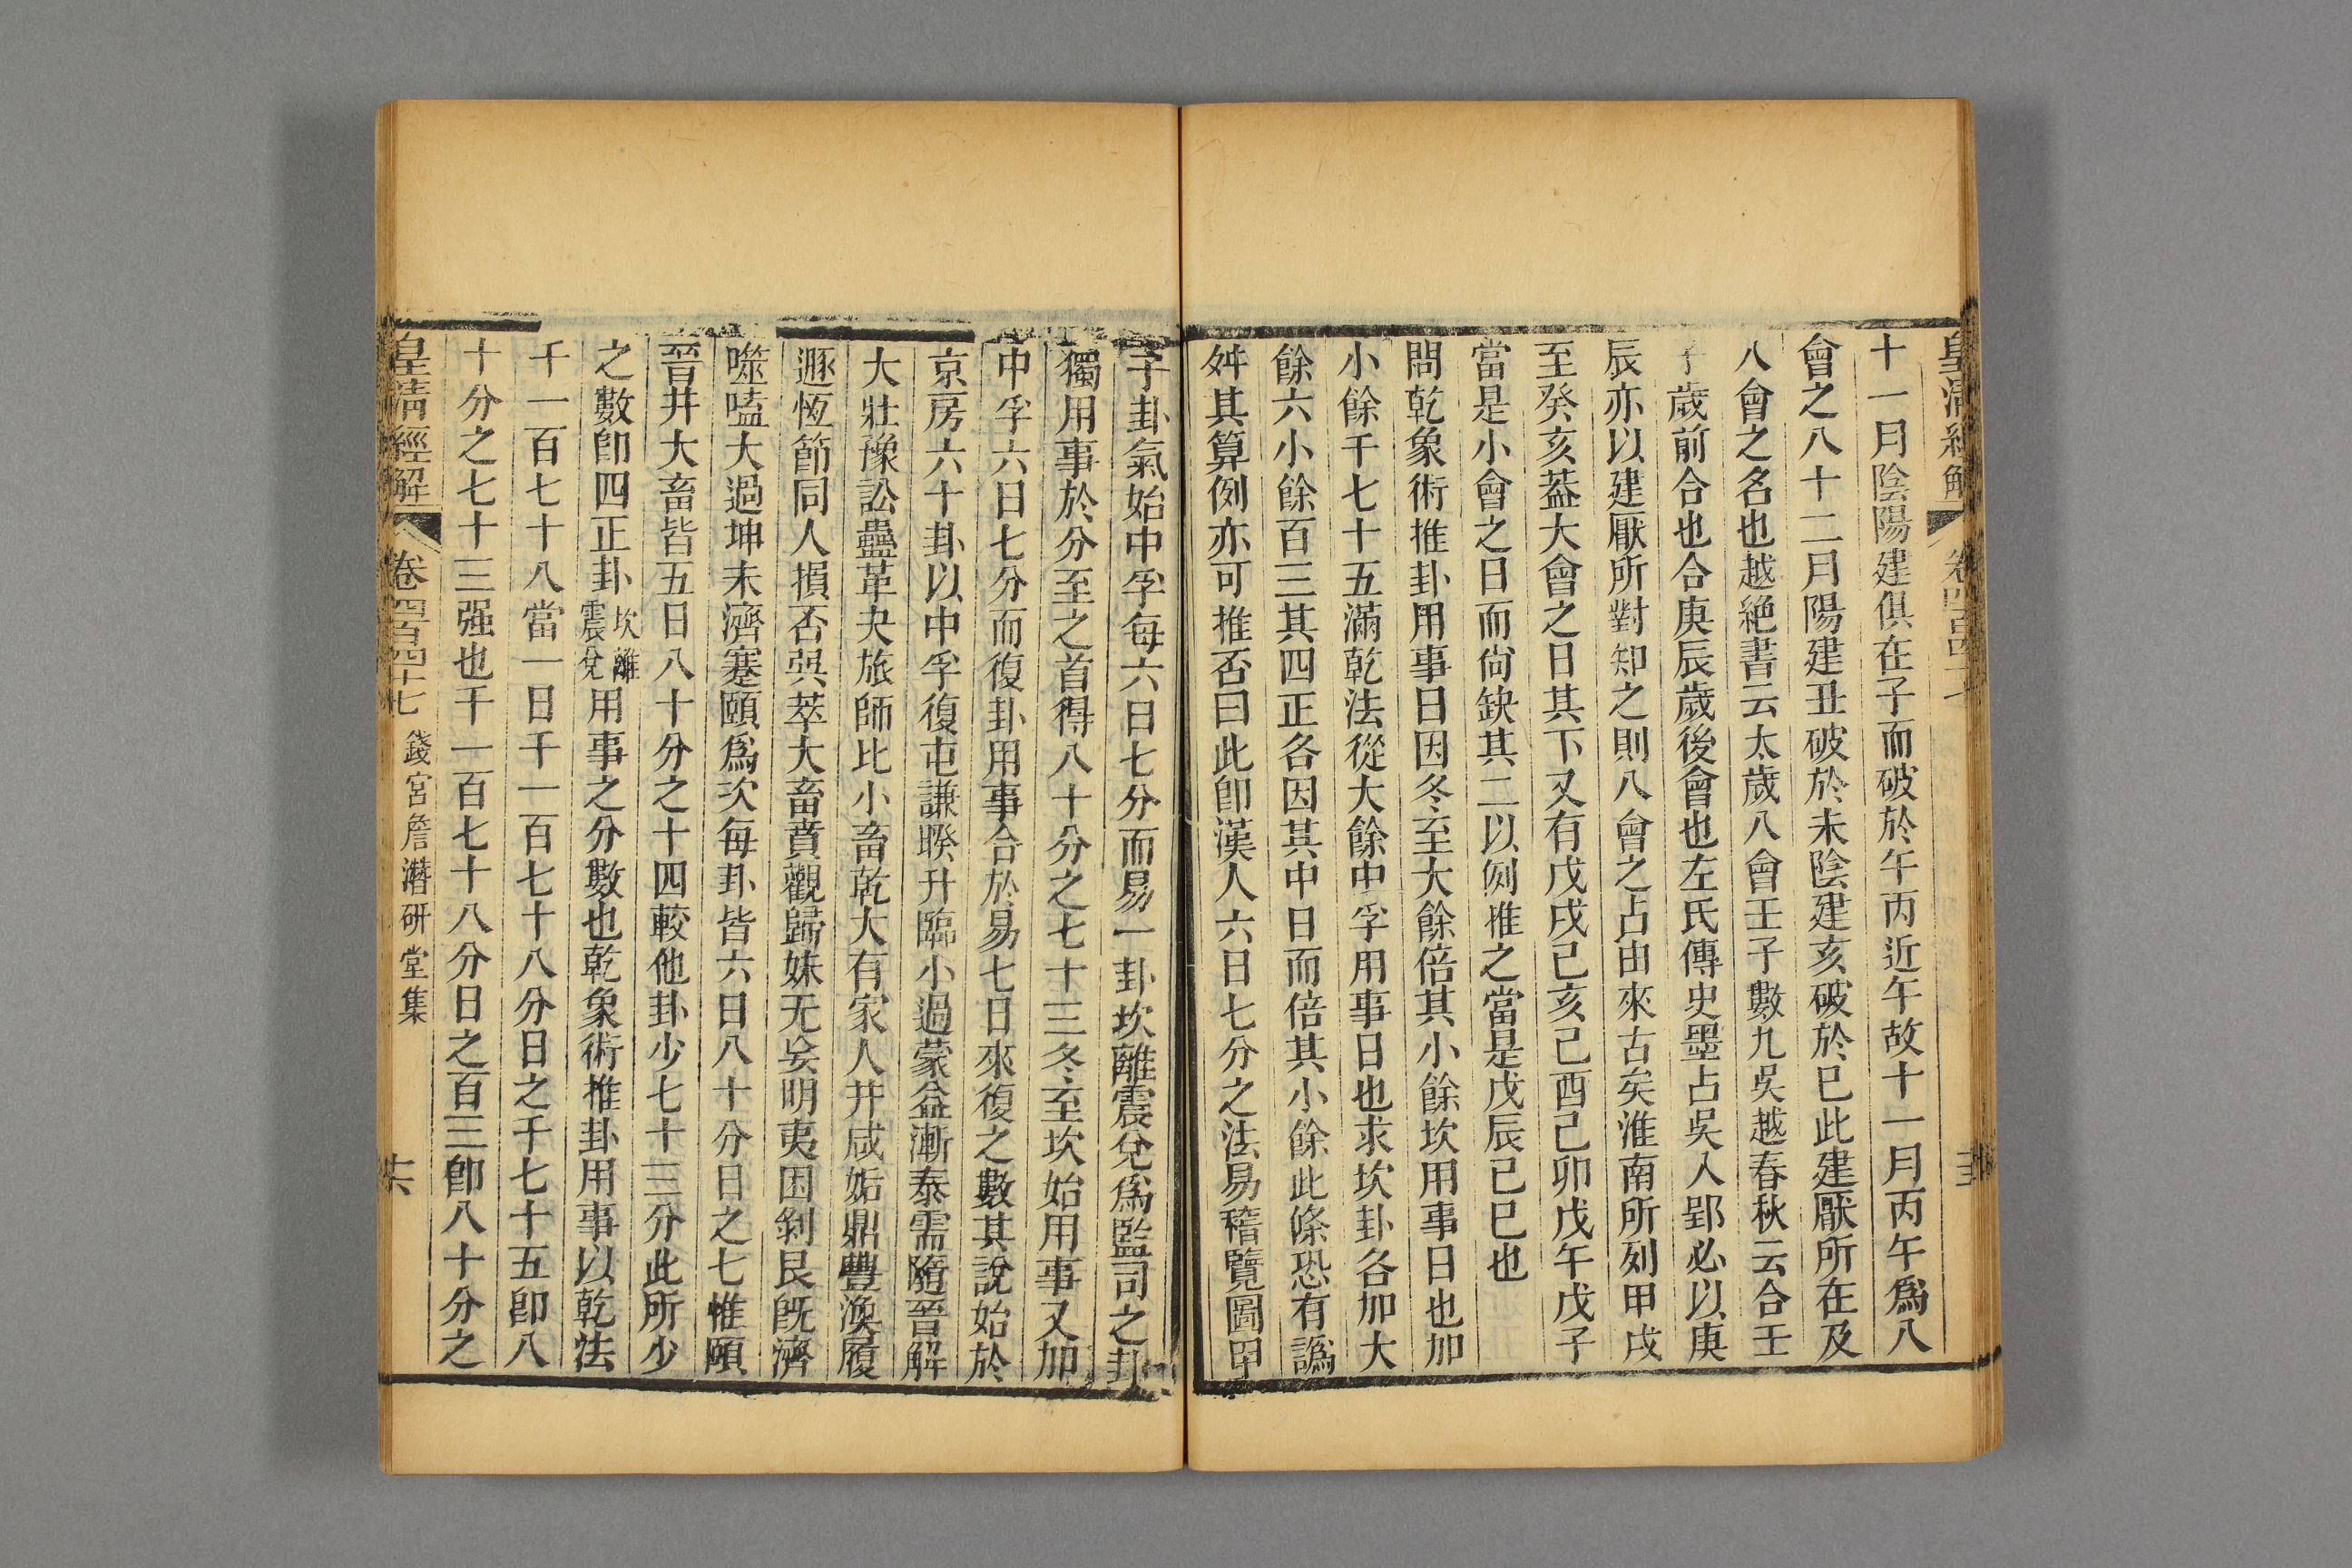 十一月陰陽建俱在子而破於午丙近午故十一月丙午爲八
會之八十二月陽建丑破於未陰建亥破於巳此建厭所在及
八會之名也越絶書云太歲八會壬子數九吳越春秋云合壬
子歲前合也合庚辰歲後會也左氏傳史墨占吳入郢必以庚
辰亦以建厭所對知之則八會之占由來古矣淮南所列甲戌
至癸亥葢大會之日其下又有戊戌己亥己酉己卯戊午戊子
當是小會之日而尙缺其二以例推之當是戊辰己巳也
問乾象術推卦用事日因冬至大餘倍其小餘坎用事日也加
小餘千七十五滿乾法從大餘中孚用事日也求坎卦各加大
餘六小餘百三其四正各因其中日而倍其小餘此條恐有譌
舛其算例亦可推否曰此卽漢人六日七分之法易稽覽圖甲
子卦氣始中孚每六日七分而易一卦坎離震兌爲監司之卦
獨用事於分至之首得八十分之七十三冬至坎始用事又加
中孚六日七分而復卦用事合於易七日來復之數其說始於
京房六十卦以中孚復屯謙睽升臨小過蒙益漸泰需隨晉解
大壯豫訟蠱革夬旅師比小畜乾大有家人井咸姤鼎豐渙履
遯恆節同人損否巽萃大畜賁觀歸妹无妄明夷困剝艮旣濟
噬嗑大過坤未濟蹇頤爲次每卦皆六日八十分日之七惟頤
晉井大畜皆五日八十分之十四較他卦少七十三分此所少
之數卽四正卦坎離震兌用事之分數也乾象術推卦用事以乾法
千一百七十八當一日千一百七十八分日之千七十五卽八
十分之七十三强也千一百七十八分日之百三卽八十分之
皇淸經解 卷四百四十七 錢宮詹潛研堂集 六